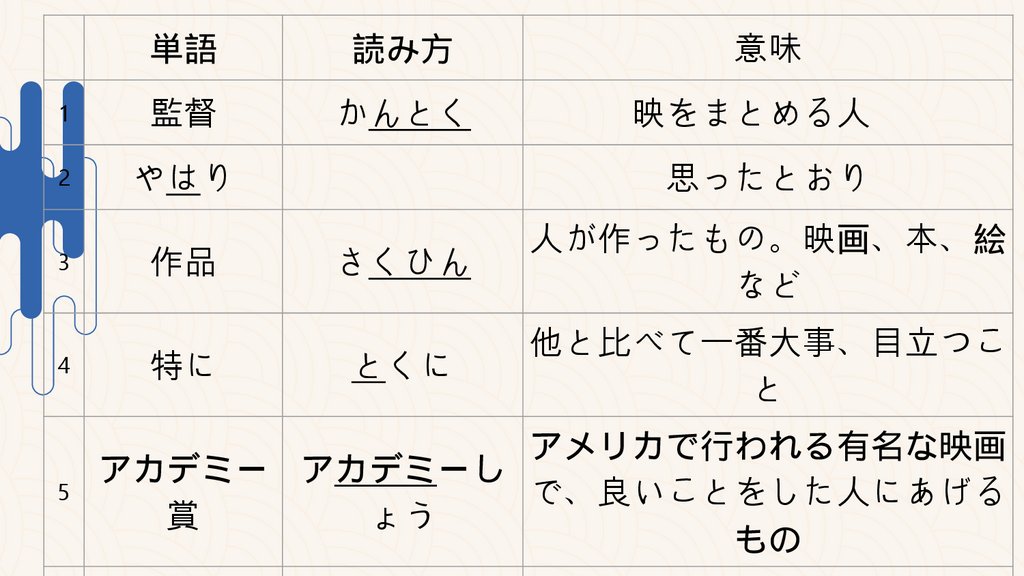 単語 読み方 意味
1 監督 かんとく 映をまとめる人
2 やはり 思ったとおり
3 作品 さくひん 人が作ったもの。映画、本、絵
など
4 特に とくに 他と比べて一番大事、目立つこ
と
5 アカデミー アカデミーし アメリカで行われる有名な映画
賞 ょう で、良いことをした人にあげる
もの